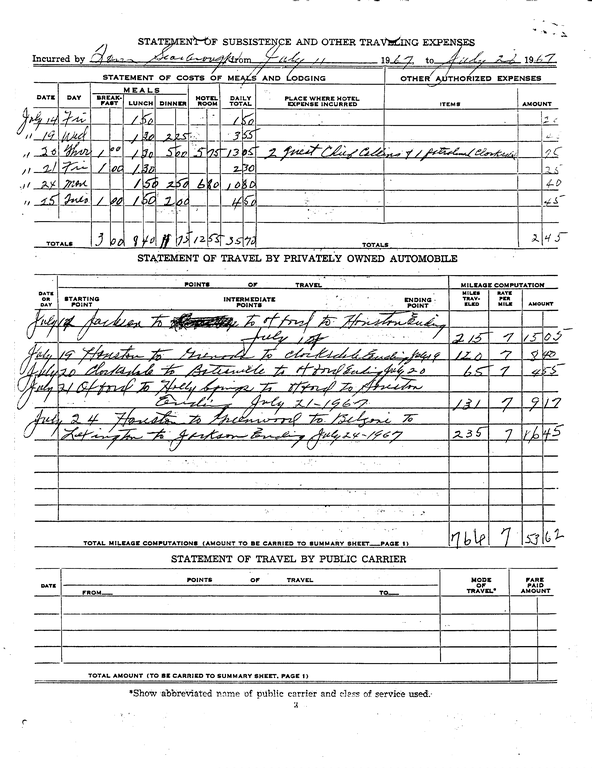 STATEMENT OF SUBSISTENCE AND OTHER TRAVELING EXPENSES
Incurred by Scarbrough from July 11 1967 to July 1967
STATEMENT OF COSTS OF MEALS AND LODGING OTHER AUTHORIZED EXPENSES
DATE DAY MEALS BREAK-FAST LUNCH DINNER HOTEL ROOM DAILY TOTAL PLACE WHERE HOTEL EXPENSE INCURRED ITEMS AMOUNT
July 14 Fri 1 50 1 50
" 19 Wed 1 30 2 25 3 55
" 20 Thur 1 00 1 30 5 00 5 75 13 05 2 guest Chief Collins & 1 patrolman Clarksdale
" 21 Fri 1 00 1 30 2 30
" 24 Mon 1 50 2 50 6 80 10 80 40
" 25 Tues 1 00 1 50 2 00 4 50 45
TOTALS 3 00 8 40 11 75 12 55 35 70 TOTALS 2 45
STATEMENT OF TRAVEL BY PRIVATELY OWNED AUTOMOBILE
DATE OR DAY POINTS OF TRAVEL MILEAGE COMPUTATION
STARTING POINT INTERMEDIATE POINTS ENDING POINT MILES TRAV-ELED RATE PER MILE AMOUNT
July 14 Jackson to to Oxford to Houston Ending
July 14 215 7 15 05
July 19 Houston to Grenada to Clarksdale Ending July 19 120 7 8 40
July 20 Clarksdale to Batesville to Oxford Ending July 20 65 7 4 55
July 21 Oxford to Holly Springs to Oxford to Houston
Ending July 21-1967 131 7 9 17
July 24 Houston to Greenwood to Belzoni to
Lexington to Jackson Ending July 24-1967 235 7 16 45
TOTAL MILEAGE COMPUTATIONS (AMOUNT TO BE CARRIED TO SUMMARY SHEET—PAGE 1) 766 7 53 62
STATEMENT OF TRAVEL BY PUBLIC CARRIER
DATE POINTS OF TRAVEL MODE OF TRAVEL* FARE PAID AMOUNT
FROM— TO—
TOTAL AMOUNT (TO BE CARRIED TO SUMMARY SHEET, PAGE 1)
*Show abbreviated name of public carrier and class of service used.
2